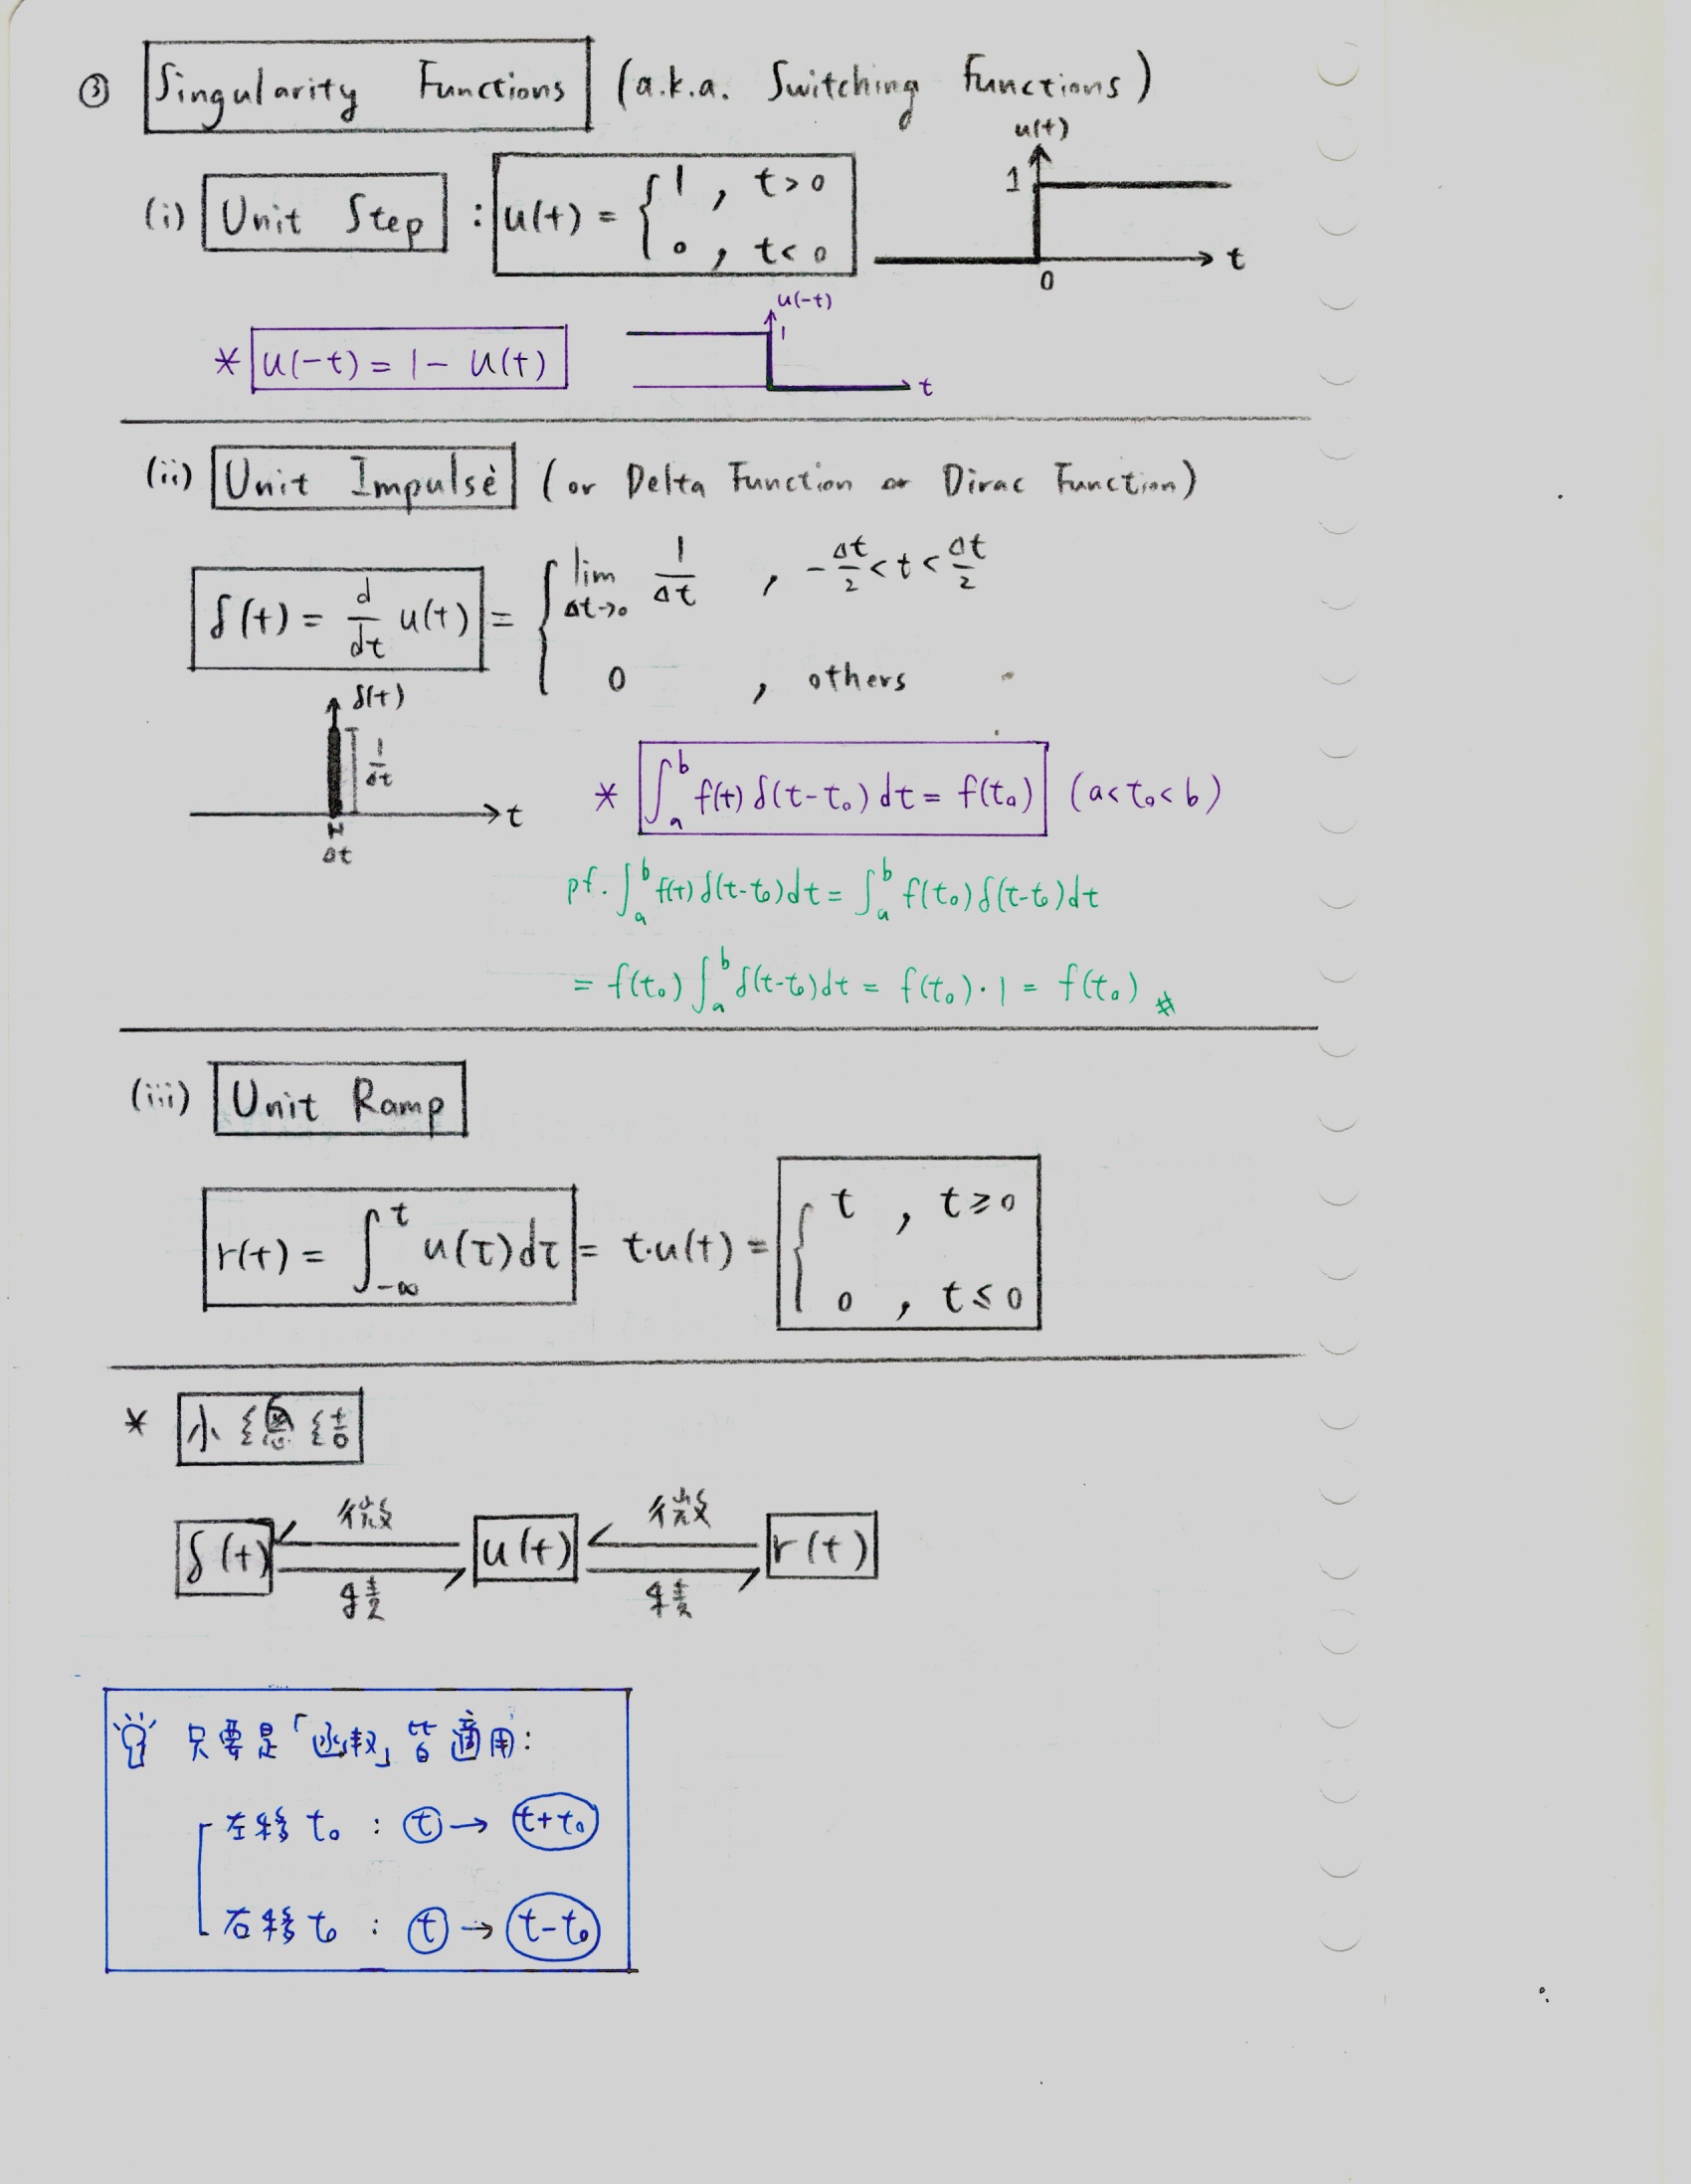 ③ Singularity Functions (a.k.a. Switching Functions)
(i) Unit Step : u(t) = { 1 , t>0
0 , t<0
u(t)
1
0
t
* u(-t) = 1 - u(t)
u(-t)
1
t
(ii) Unit Impulse (or Delta Function or Dirac Function)
δ(t) = d/dt u(t) = { lim Δt→0 1/Δt , -Δt/2 < t < Δt/2
0 , others
δ(t)
1/Δt
t
Δt
* ∫_a^b f(t) δ(t-t₀) dt = f(t₀) (a<t₀<b)
pf. ∫_a^b f(t) δ(t-t₀) dt = ∫_a^b f(t₀) δ(t-t₀) dt
= f(t₀) ∫_a^b δ(t-t₀) dt = f(t₀)·1 = f(t₀) #
(iii) Unit Ramp
r(t) = ∫_{-∞}^t u(τ) dτ = t·u(t) = { t , t≥0
0 , t≤0
* 小總結
微 微
δ(t) u(t) r(t)
積 積
只要是「函数」皆適用:
左移 t₀ : t → t+t₀
右移 t₀ : t → t-t₀